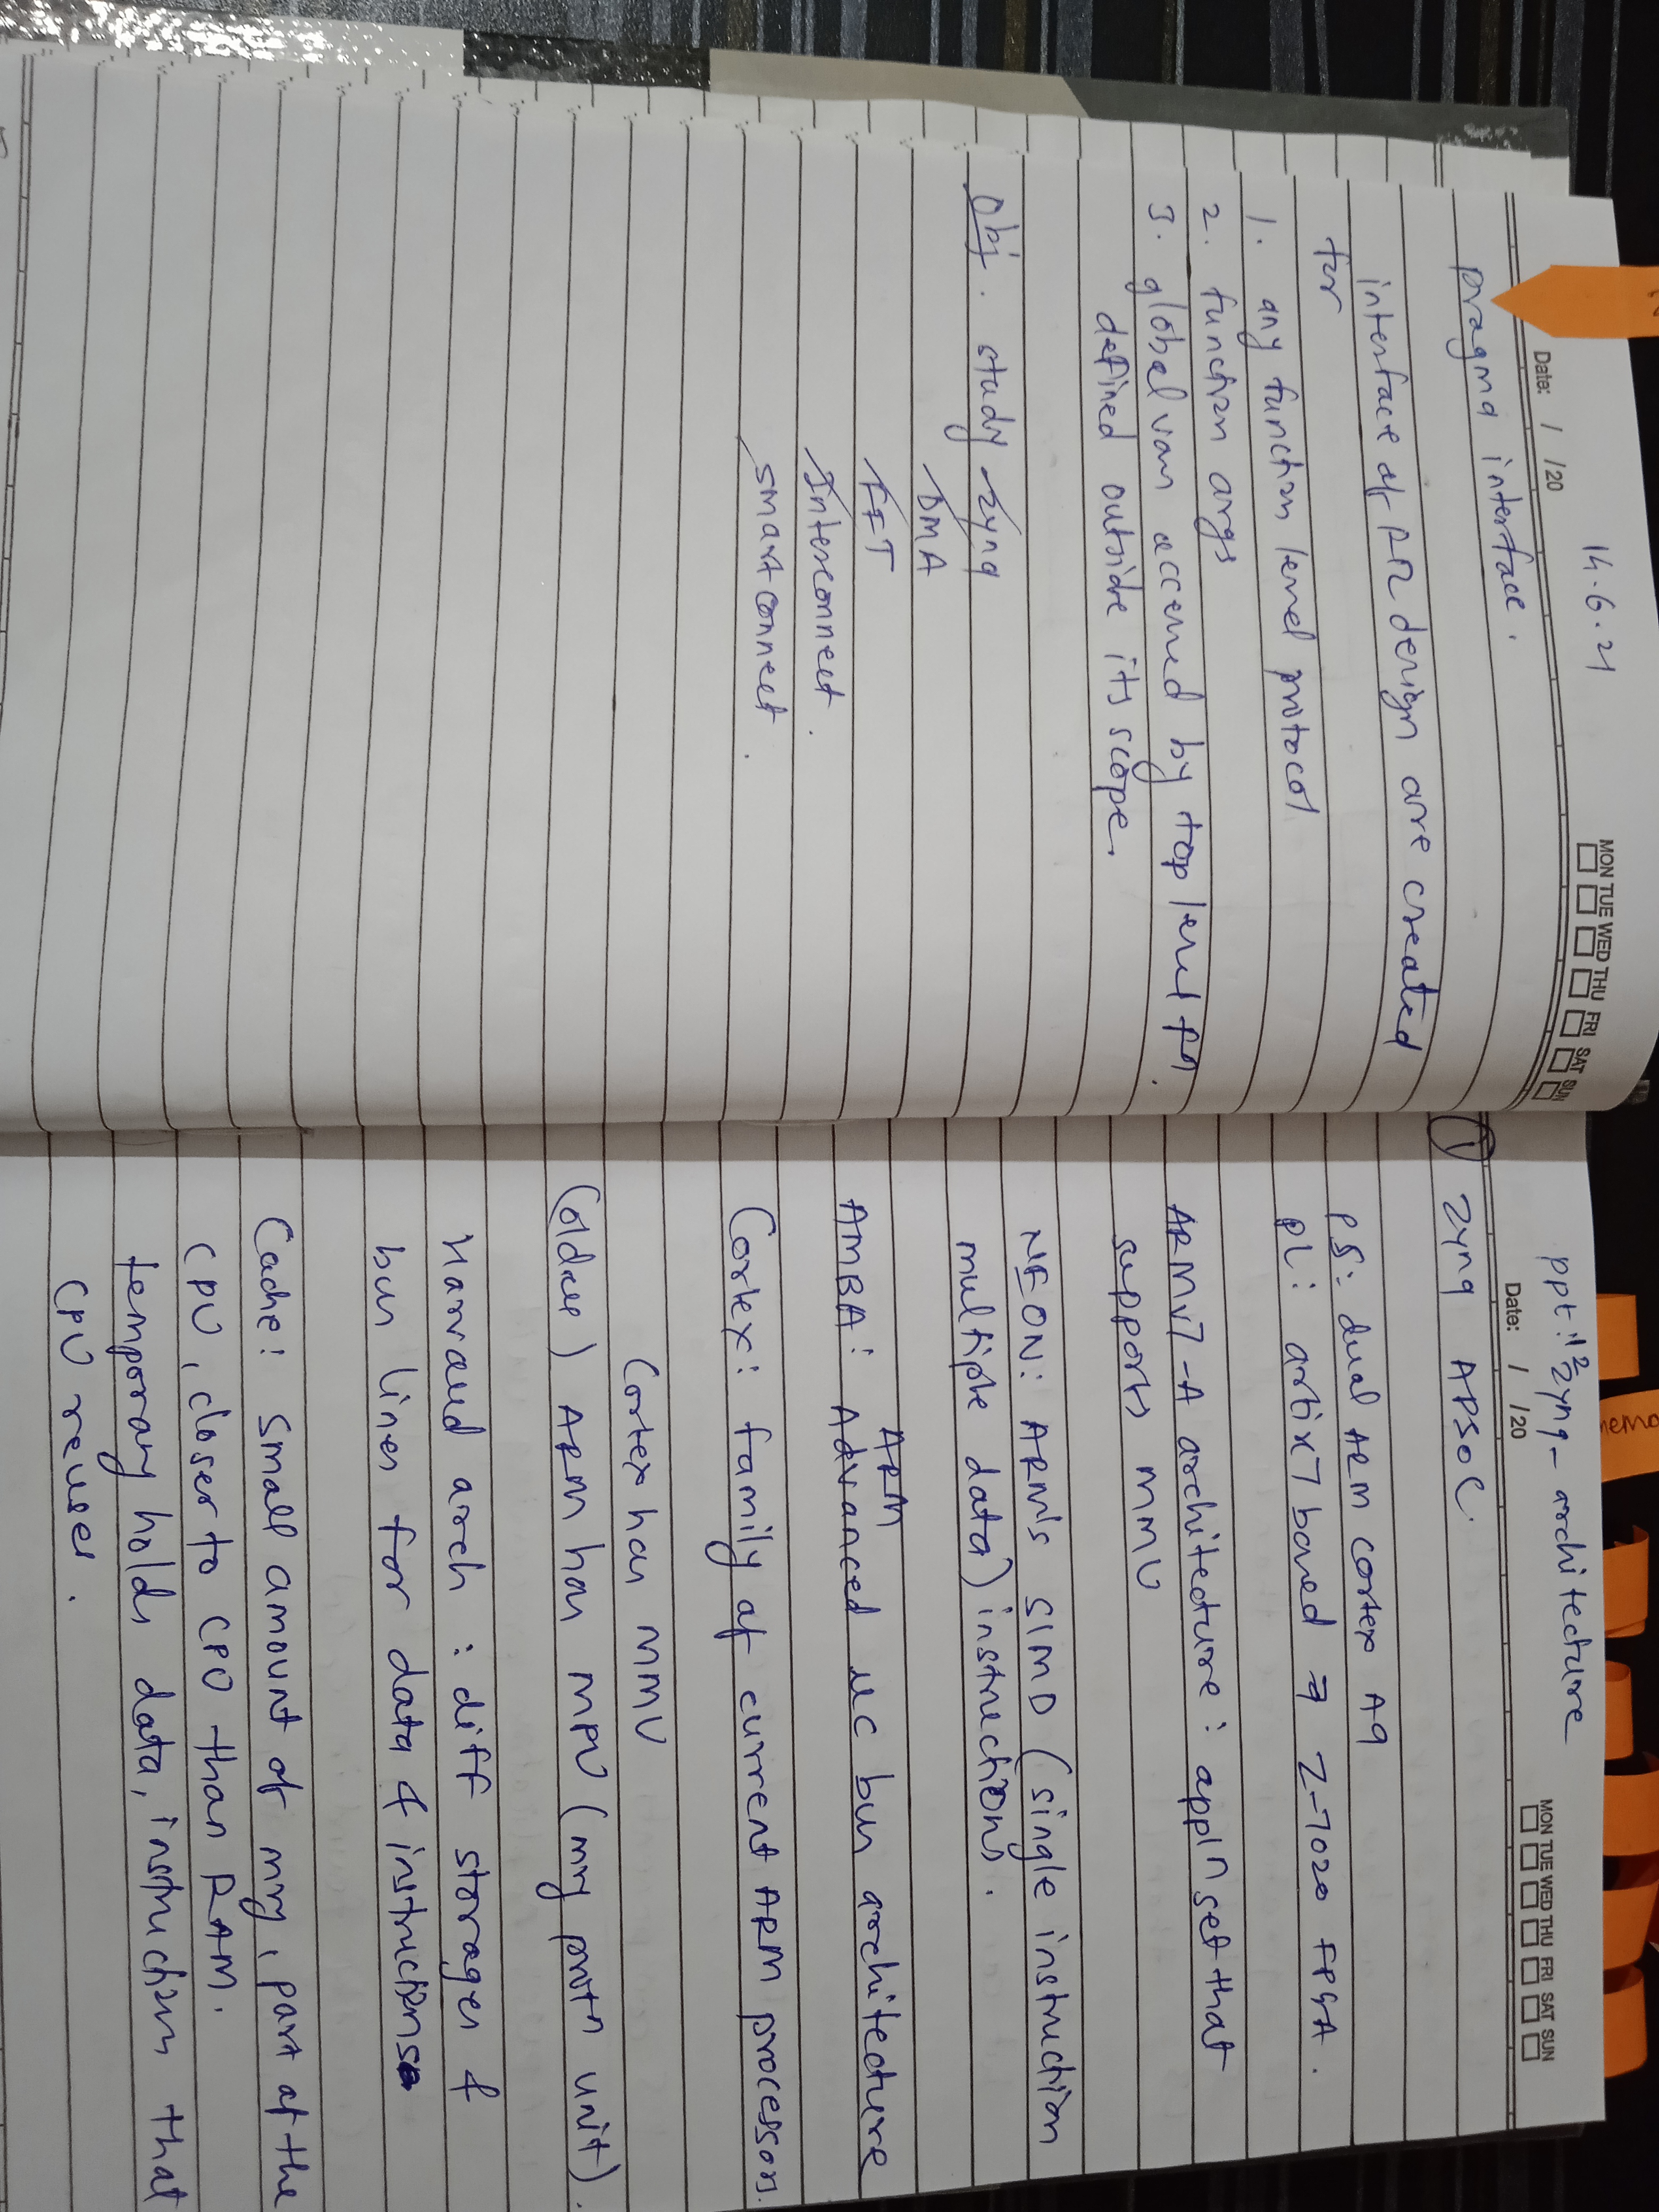 14.6.21
Date: / /20
MON TUE WED THU FRI SAT SUN
pragma interface.
interface of RTL design are created
for
1. any function level protocol
2. function args
3. global var accessed by top level fn.
defined outside its scope.
Obj. study Zynq
DMA
FFT
Interconnect.
smartconnect.
ppt: "2 Zynq - architecture
Date: / /20
MON TUE WED THU FRI SAT SUN
memo
1 Zynq APSoC.
PS: dual ARM cortex A9
PL: artix7 based ⇒ Z-7020 FPGA.
ARMv7-A architecture: appln set that
supports MMU
NEON: ARM's SIMD (single instruction
multiple data) instructions.
ARM
AMBA: Advanced uc bus architecture
Cortex: family of current ARM processors.
Cortex has MMU
(older) ARM has MPU (mry protn unit).
Harvard arch : diff storages &
bus lines for data & instructions
Cache: small amount of mry, part of the
CPU, closer to CPU than RAM.
temporary holds data, instruction that
CPU reuses.